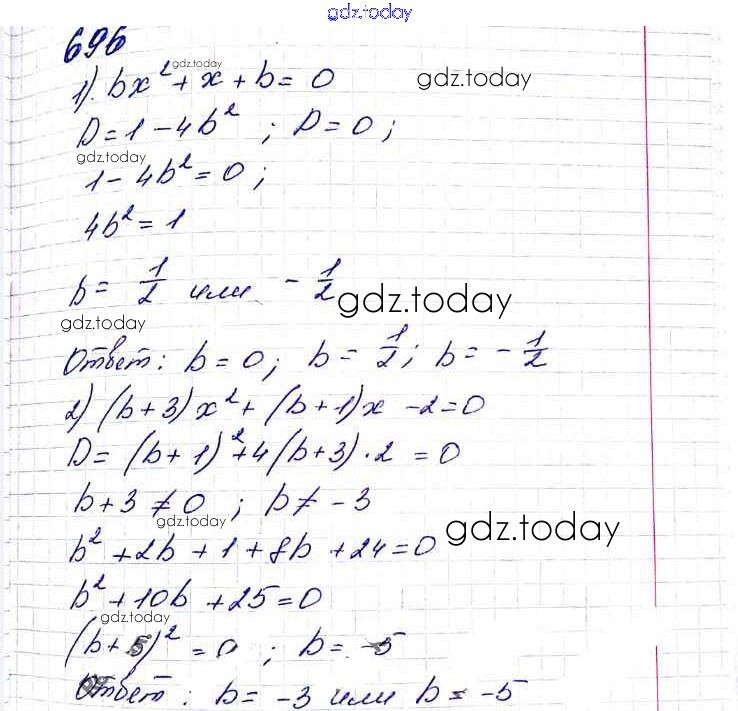 gdz.today
696
gdz.today
1). bx² + x + b = 0
gdz.today
D = 1 - 4b² ; D = 0 ;
gdz.today
1 - 4b² = 0 ;
4b² = 1
b = 1/2 или - 1/2
gdz.today
gdz.today
Ответ: b = 0; b = 1/2; b = - 1/2
2) (b + 3)x² + (b + 1)x - 2 = 0
D = (b + 1)² + 4(b + 3) · 2 = 0
b + 3 ≠ 0 ; b ≠ - 3
gdz.today
gdz.today
b² + 2b + 1 + 8b + 24 = 0
b² + 10b + 25 = 0
gdz.today
(b + 5)² = 0 ; b = -5
Ответ : b = -3 или b = -5